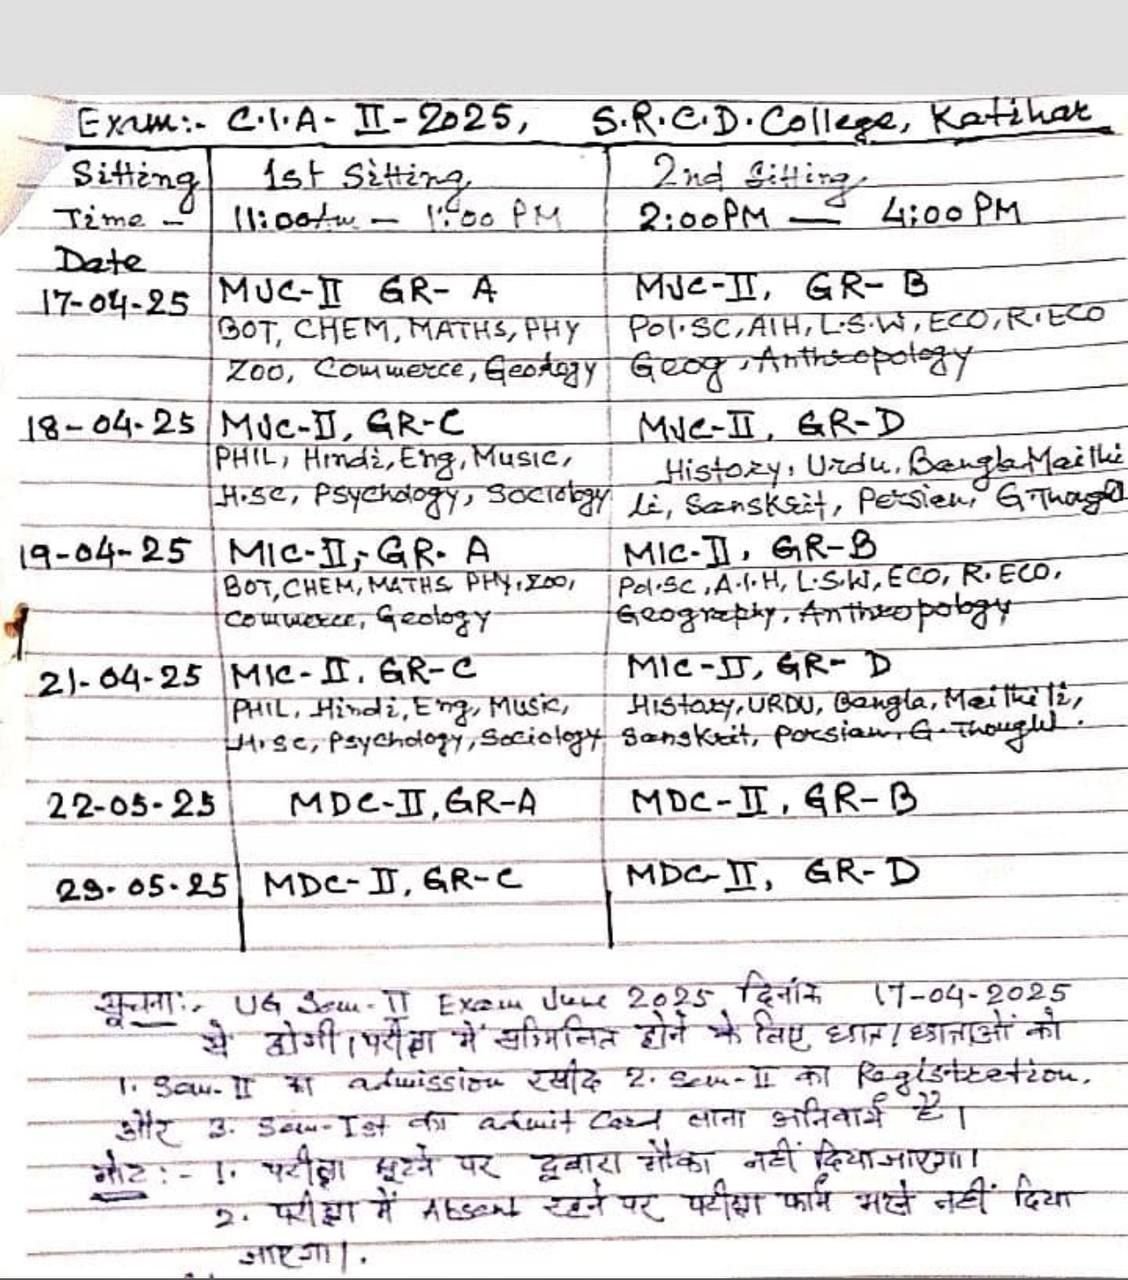 Exam:- C.I.A- II-2025, S.R.C.D. College, Katihar
Sitting 1st Sitting 2nd Sitting
Time - 11:00Am - 1:00 PM 2:00PM - 4:00PM
Date
17-04-25 MJC-II GR- A MJC-II, GR- B
BOT, CHEM, MATHS, PHY Pol.SC, AIH, L.S.W, ECO, R.ECO
ZOO, Commerce, Geology Geog, Anthropology
18-04-25 MJC-II, GR-C MJC-II, GR-D
PHIL, Hindi, Eng, Music, History, Urdu, Bangla Maithi
H.SC, Psychology, Sociology li, Sanskrit, Persian, G Thought
19-04-25 MIC-II, GR- A MIC-II, GR-B
BOT, CHEM, MATHS PHY, ZOO, Pol.SC, A.I.H, L.S.W, ECO, R.ECO,
Commerce, Geology Geography, Anthropology
21-04-25 MIC-II, GR-C MIC-II, GR- D
PHIL, Hindi, Eng, Music, History, URDU, Bangla, Maithili,
H.SC, Psychology, Sociology Sanskrit, Persian, G. Thought.
22-05-25 MDC-II, GR-A MDC-II, GR-B
29-05-25 MDC-II, GR-C MDC-II, GR-D
सूचना:- UG Sem-II Exam June 2025 दिनांक 17-04-2025
से होगी। परीक्षा में सम्मिलित होने के लिए छात्र/छात्राओं को
1. Sem-II का admission रसीद 2. Sem-II का Registration.
और 3. Sem-Ist का admit Card लाना अनिवार्य है।
नोट:- 1. परीक्षा छूटने पर दूबारा मौका नहीं दिया जाएगा।
2. परीक्षा में Absent रहने पर परीक्षा फार्म भरने नहीं दिया
जाएगा।.